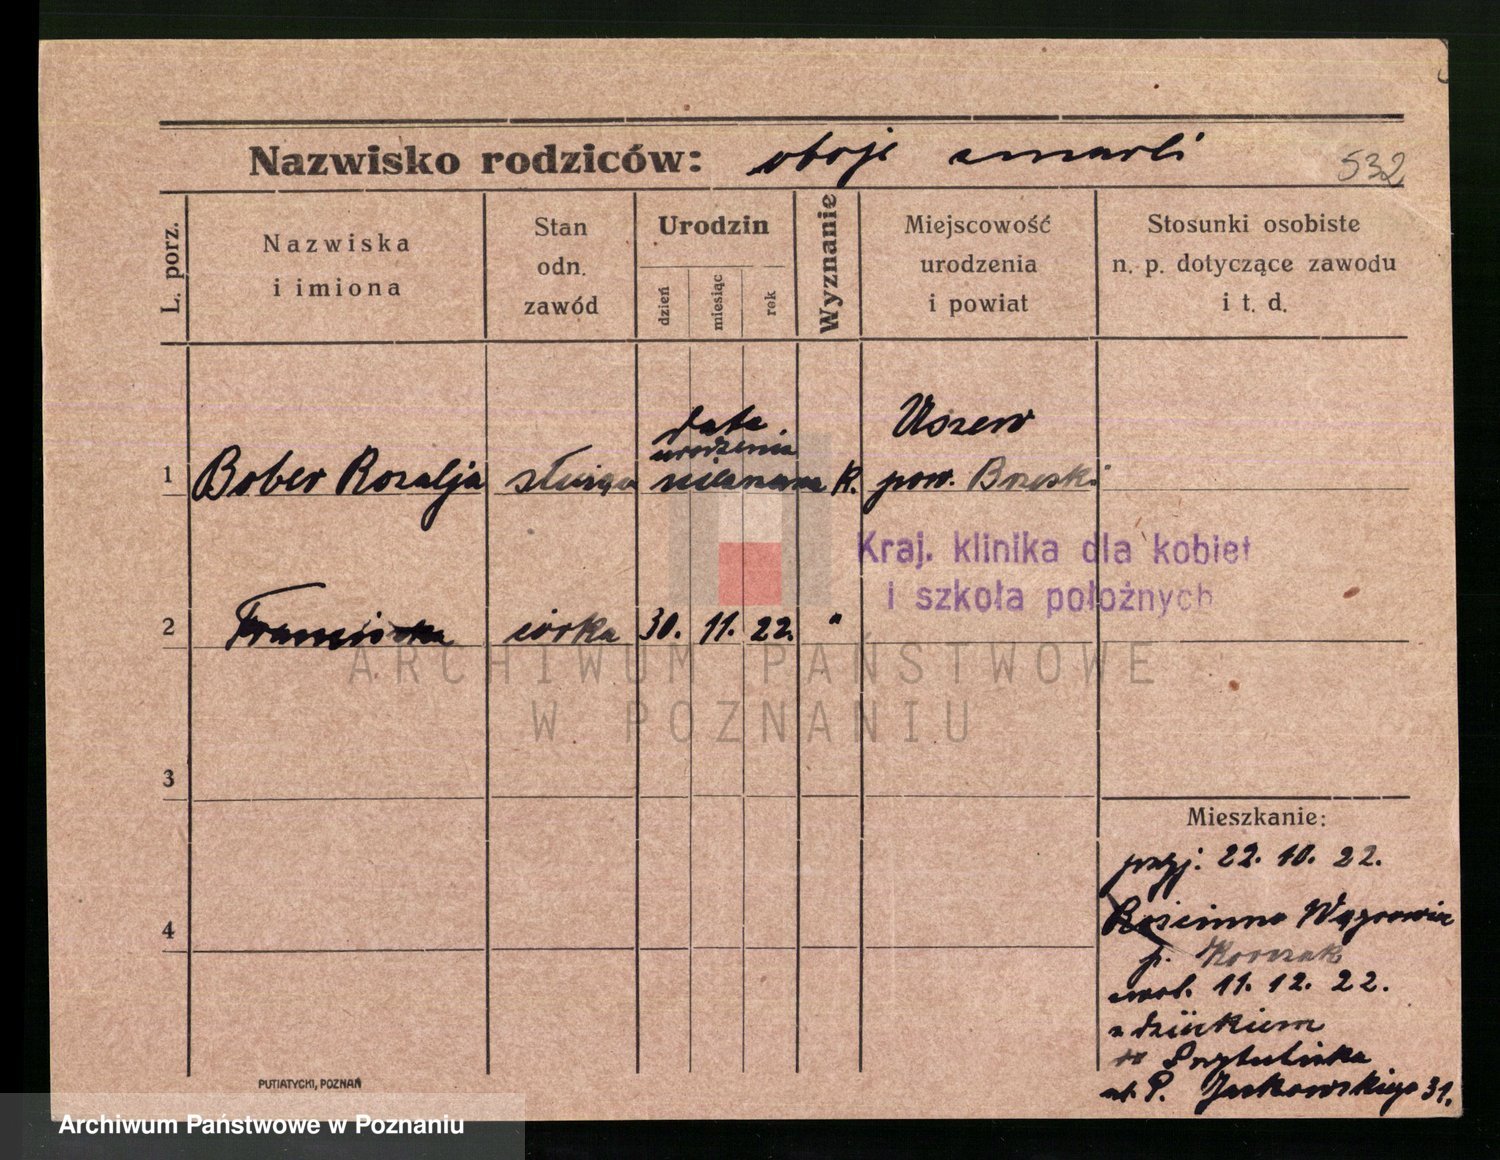 Nazwisko rodziców: oboje zmarli
532
L. porz.
Nazwiska
i imiona
Stan
odn.
zawód
Urodzin
dzień
miesiąc
rok
Wyznanie
Miejscowość
urodzenia
i powiat
Stosunki osobiste
n. p. dotyczące zawodu
i t. d.
data
urodzenia
nieznana
Uszew
1 Bober Rozalja służąca K. pow. Brzeski
Kraj. klinika dla kobiet
i szkoła położnych
2 Franciszka córka 30. 11. 22. "
ARCHIWUM PAŃSTWOWE
W POZNANIU
3
Mieszkanie:
przyj. 22. 10. 22.
4
Wągrowiec
p. Korczak
zwol. 11. 12. 22.
z dzieckiem
do Przytuliska
ul. P. Jackowskiego 31.
PUTIATYCKI, POZNAŃ
Archiwum Państwowe w Poznaniu